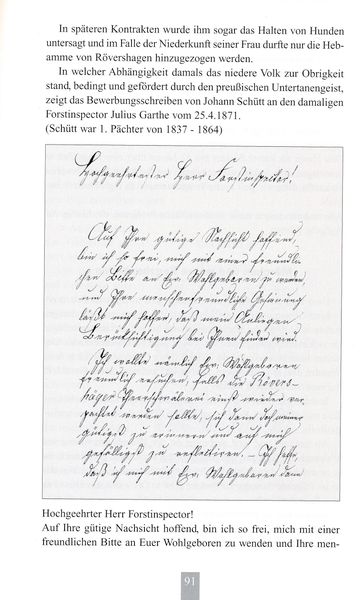 In späteren Kontrakten wurde ihm sogar das Halten von Hunden
untersagt und im Falle der Niederkunft seiner Frau durfte nur die Heb-
amme von Rövershagen hinzugezogen werden.
In welcher Abhängigkeit damals das niedere Volk zur Obrigkeit
stand, bedingt und gefördert durch den preußischen Untertanengeist,
zeigt das Bewerbungsschreiben von Johann Schütt an den damaligen
Forstinspector Julius Garthe vom 25.4.1871.
(Schütt war 1. Pächter von 1837 - 1864)
Hochgeehrtester Herr Forstinspector!
Auf Ihre gütige Nachsicht hoffend,
bin ich so frei, mich mit einer freundli-
chen Bitte an Ew. Wohlgeboren zu wenden
und Ihre menschenfreundliche Gesinnung
läßt mich hoffen, daß mein Anliegen
Berücksichtigung bei Ihnen finden wird.
Ich wollte nämlich Ew. Wohlgeboren
freundlich ersuchen, falls die Rövers-
häger Theerschwälerei einst wieder ver-
pachtet werden sollte, sich dann doch meiner
gütigst zu erinnern und auf mich
gefälligst zu reflektiren. – Ich hoffe,
daß ich mich mit Ew. Wohlgeboren dann
Hochgeehrter Herr Forstinspector!
Auf Ihre gütige Nachsicht hoffend, bin ich so frei, mich mit einer
freundlichen Bitte an Euer Wohlgeboren zu wenden und Ihre men-
91